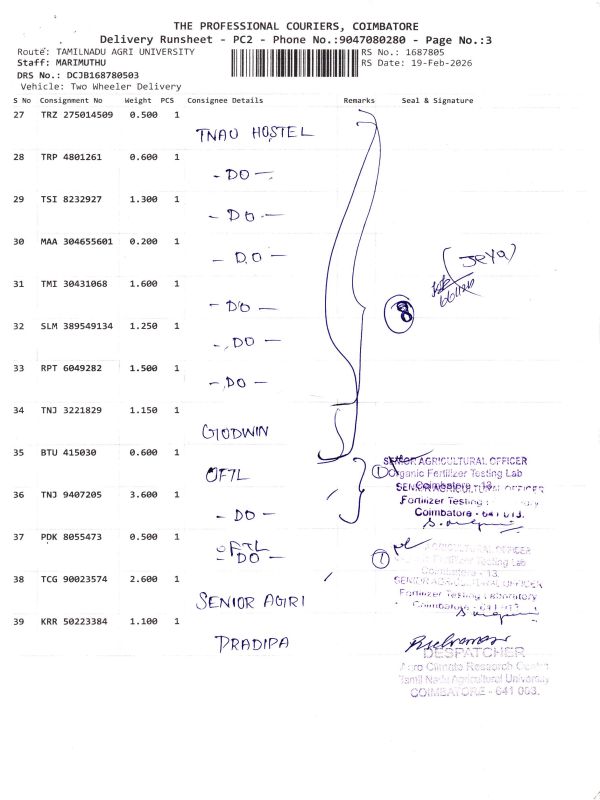 THE PROFESSIONAL COURIERS, COIMBATORE
Delivery Runsheet - PC2 - Phone No.:9047080280 - Page No.:3
Route: TAMILNADU AGRI UNIVERSITY
RS No.: 1687805
Staff: MARIMUTHU
RS Date: 19-Feb-2026
DRS No.: DCJB168780503
Vehicle: Two Wheeler Delivery
S No Consignment No Weight PCS Consignee Details Remarks Seal & Signature
27 TRZ 275014509 0.500 1
TNAU HOSTEL
28 TRP 4801261 0.600 1
- DO -
29 TSI 8232927 1.300 1
- DO -
30 MAA 304655601 0.200 1
- DO -
(Jeya)
31 TMI 30431068 1.600 1
- DO -
8
32 SLM 389549134 1.250 1
- DO -
33 RPT 6049282 1.500 1
- DO -
34 TNJ 3221829 1.150 1
GIODWIN
35 BTU 415030 0.600 1
OFTL
1
SENIOR AGRICULTURAL OFFICER
Organic Fertilizer Testing Lab
Coimbatore - 13.
SENIOR AGRICULTURAL OFFICER
36 TNJ 9407205 3.600 1
- DO -
Fertilizer Testing
Coimbatore - 641 013.
37 PDK 8055473 0.500 1
OFTL
- DO -
1
AGRICULTURAL OFFICER
Fertilizer Testing Lab
Coimbatore - 13.
38 TCG 90023574 2.600 1
SENIOR AGRI
SENIOR AGRICULTURAL OFFICER
Fertilizer Testing Laboratory
Coimbatore - 641 013.
39 KRR 50223384 1.100 1
PRADIPA
DESPATCHER
Agro Climate Research Centre
Tamil Nadu Agricultural University
COIMBATORE - 641 003.